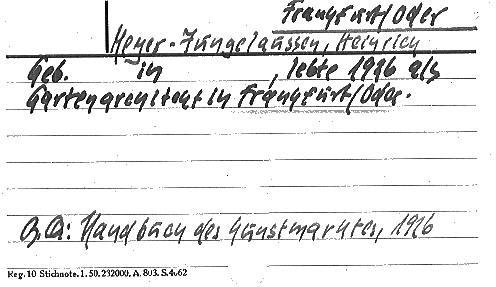 Frankfurt/Oder
Meyer-Jungclaussen, Heinrich
Geb. in , lebte 1926 als
Gartenarchitekt in Frankfurt/Oder.
Qu.: Handbuch des Kunstmarktes, 1926
Reg. 10 Stichnote. 1. 50. 232000. A. 803. S.4.62